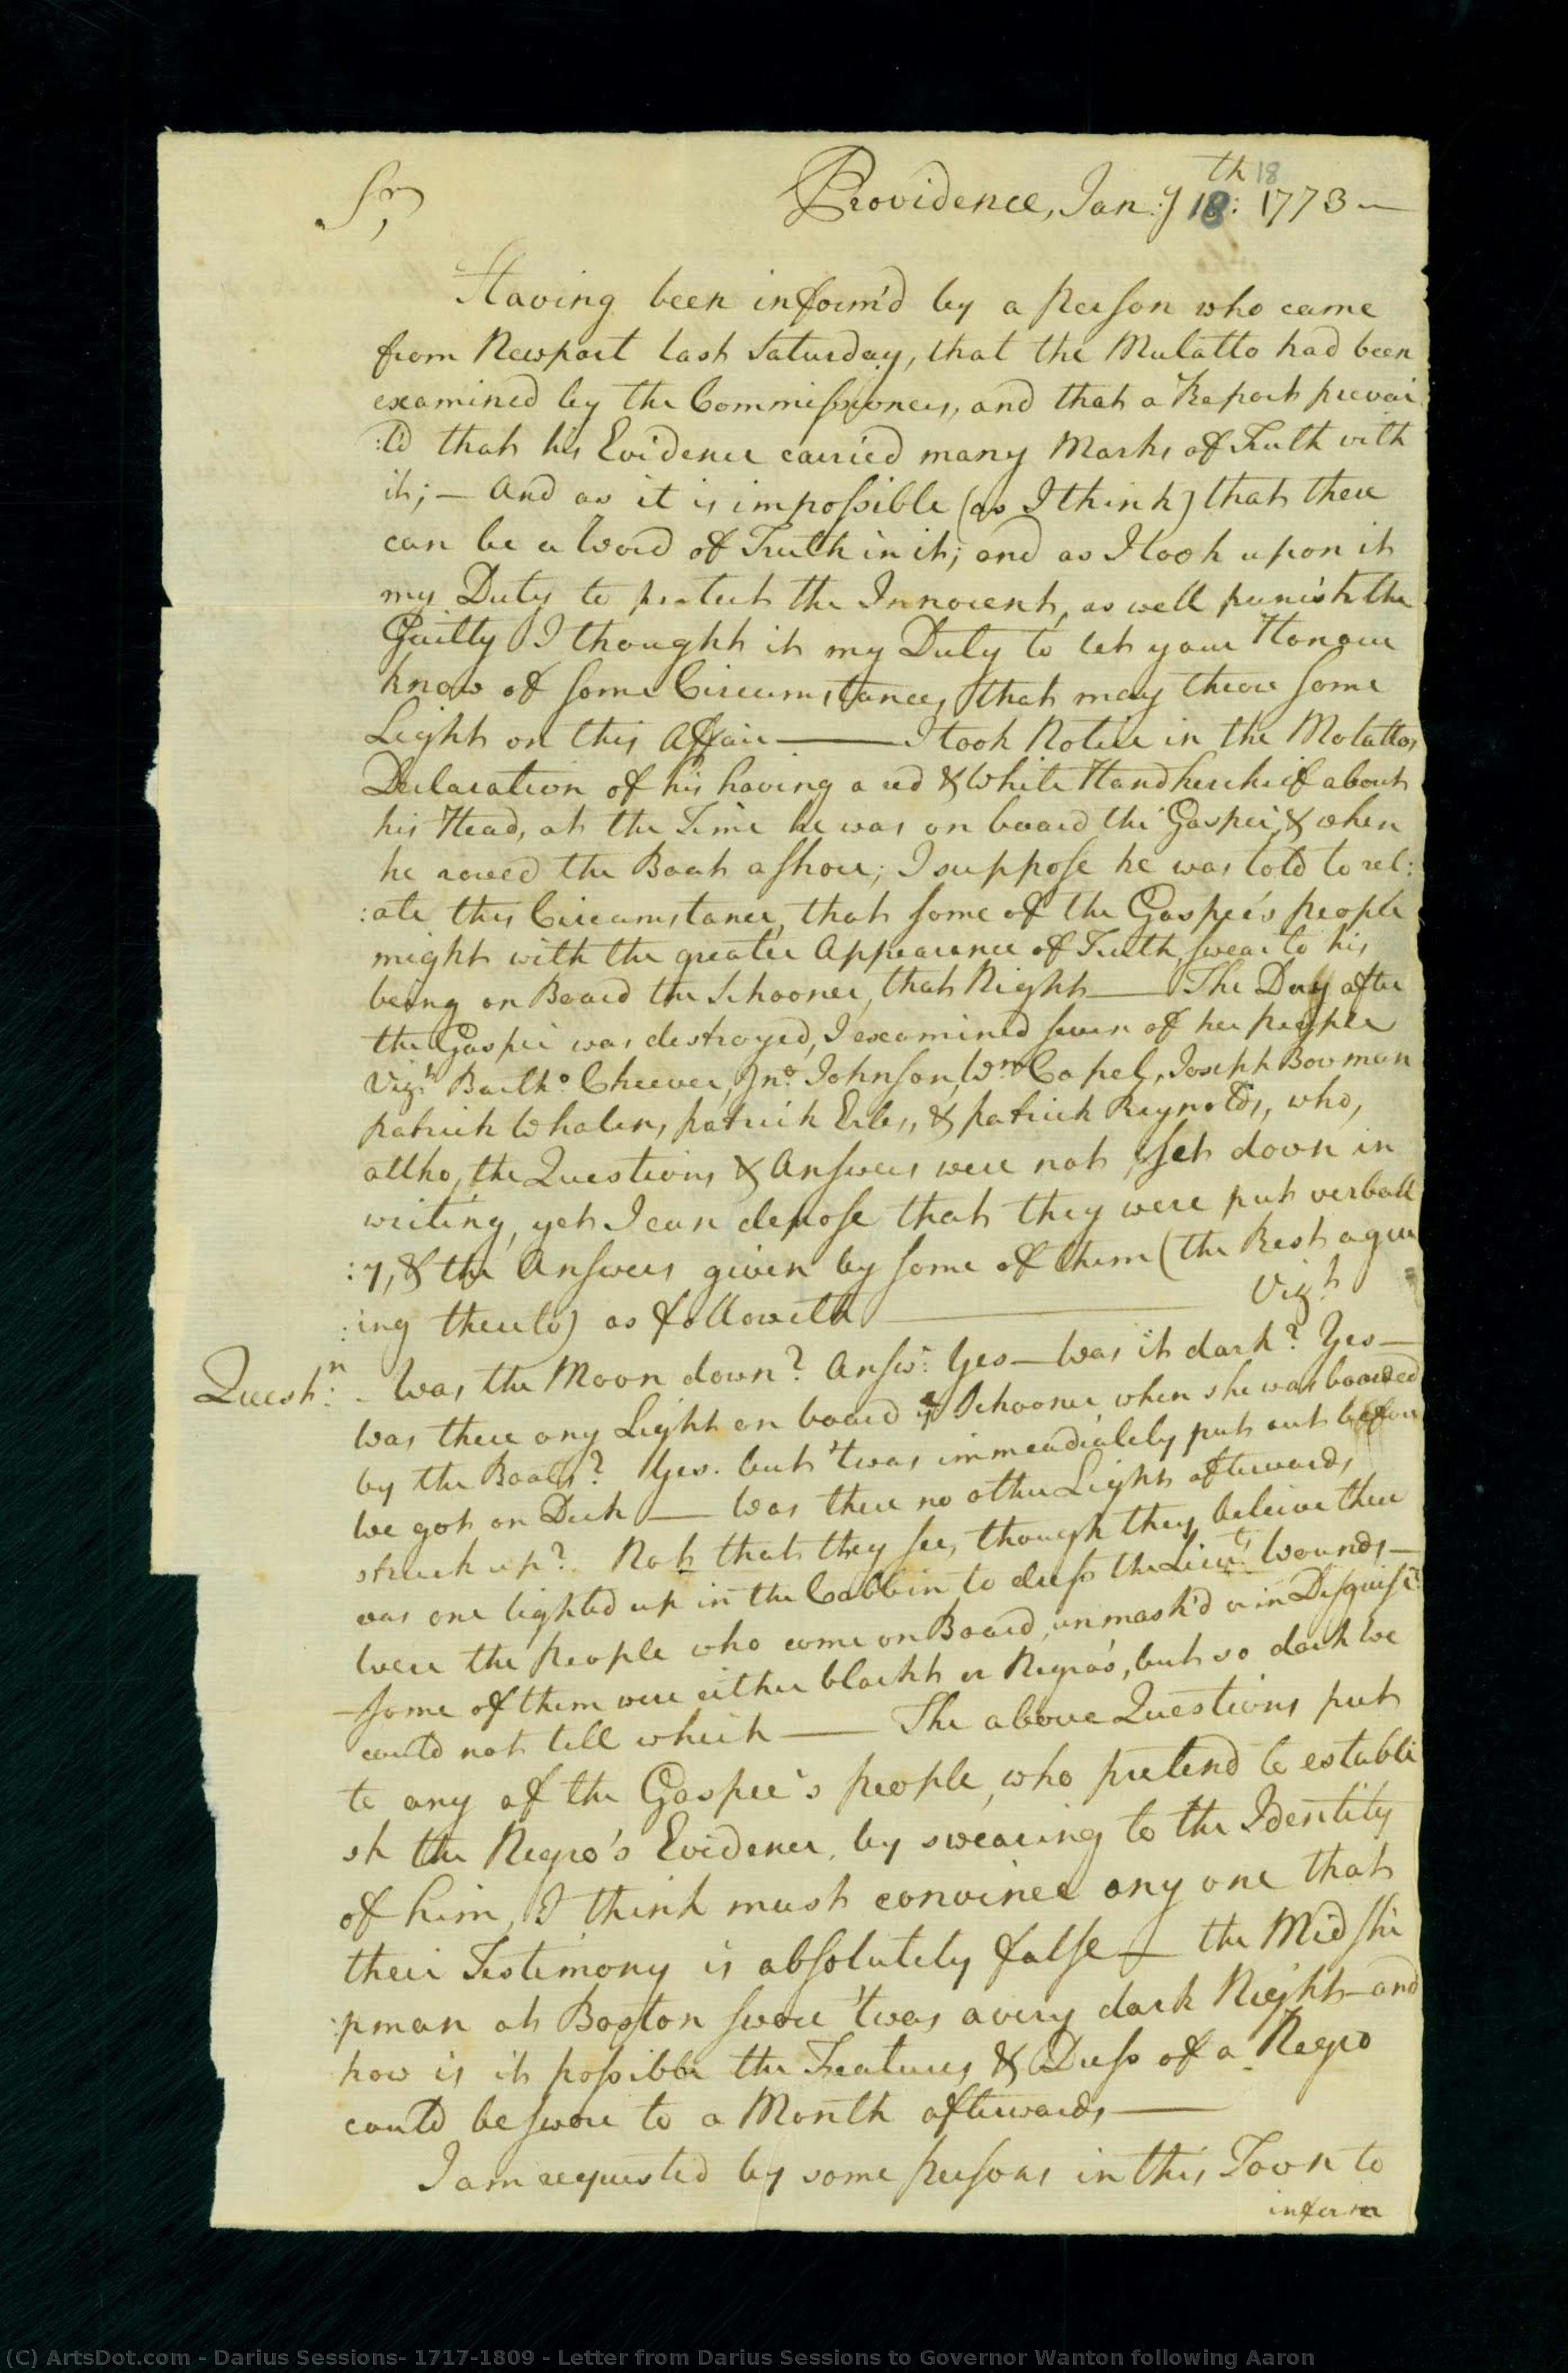 Sr,
Providence, Jan:y 18:th 1773—
18
Having been inform'd by a Person who came
from Newport last Saturday, that the Mulatto had been
examined by the Commissioners, and that a Report prevai
:l'd that his Evidence carried many Marks of Truth with
it; — And as it is impossible (as I think) that there
can be a Word of Truth in it; and as I look upon it
my Duty to protect the Innocent, as well punish the
Guilty I thought it my Duty to let your Honour
know of some Circumstances, that may throw some
Light on this Affair —— I took Notice in the Molattos
Declaration of his having a red & White Handkerchief about
his Head, at the Time he was on board the Gaspee, & when
he rowed the Boat ashore; I suppose he was told to rel:
:ate this Circumstance, that some of the Gaspee's people
might with the greater Appearence of Truth, swear to his
being on Board the Schooner, that Night —— The Day after
the Gaspee was destroyed, I examined seven of her people
Vizt Barth.o Cheever, Jn.o Johnson, Wm Capel, Joseph Bowman
patrick Whalen, patrick Erles, & patrick Reynolds, who,
altho, the Questions & Answers were not set down in
writing, yet I can depose that they were put verball
:y, & the Answers given by some of them (the Rest agree
:ing thereto) as followith —— Viz.t
Quest:n - Was the Moon down? Answ: Yes — Was it dark? Yes —
Was there any Light on board ye Schooner when she was boarded
by the Boats? Yes. but 'twas immeadiately put out before
We got on Deck — Was there no other Light afterwards
struck up? Not that they see, though they beleive there
was one lighted up in the Cabbin to dress the Lieut.s Wounds —
Were the People who come on Board, unmask'd or in Disguise?
— Some of them were either blackt or Negro's, but so dark We
could not tell which —— The above Questions put
to any of the Gaspee's people, who pretend to establi
sh the Negro's Evidence, by swearing to the Identity
of him, I think must convince any one that
their Testimony is absolutely false — the Midshi
:pman at Boston swore 'twas a very dark Night — and
how is it possible the Features & Dress of a Negro
could be swore to a Month afterwards ——
I am requested by some persons in this Town to
inform
(C) ArtsDot.com - Darius Sessions- 1717-1809 - Letter from Darius Sessions to Governor Wanton following Aaron